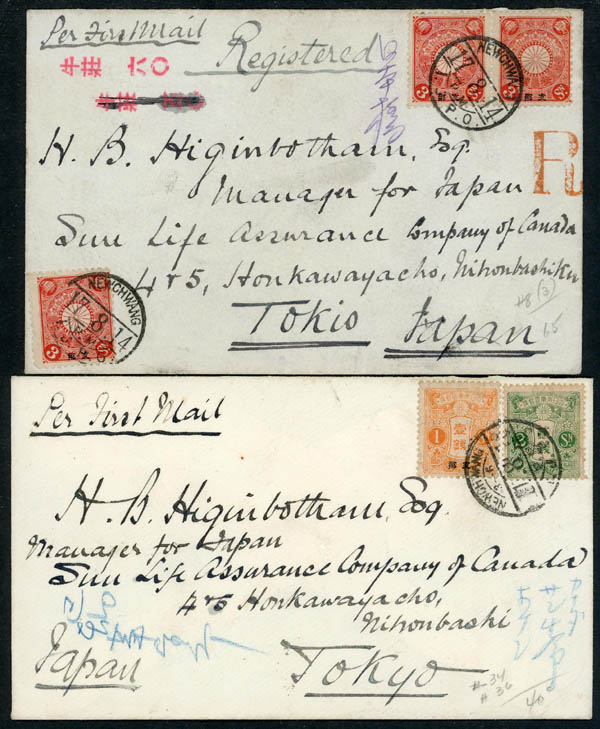 Per First Mail
Registered
牛荘 六〇
日本橋
NEWCHWANG
17-8-14
I.J.P.O.
R
H. B. Higinbotham, Esq.
Manager for Japan
Sun Life Assurance Company of Canada
4 & 5, Honkawayacho, Nihonbashiku
Tokio Japan
NEWCHWANG
17-8-14
3
3
3
Per First Mail
1
壹銭
2
NEWCHWANG
H. B. Higinbotham, Esq
Manager for Japan
Sun Life Assurance Company of Canada
4 & 5 Honkawayacho,
Nihonbashi
Japan
Tokyo
# 34
# 36
40